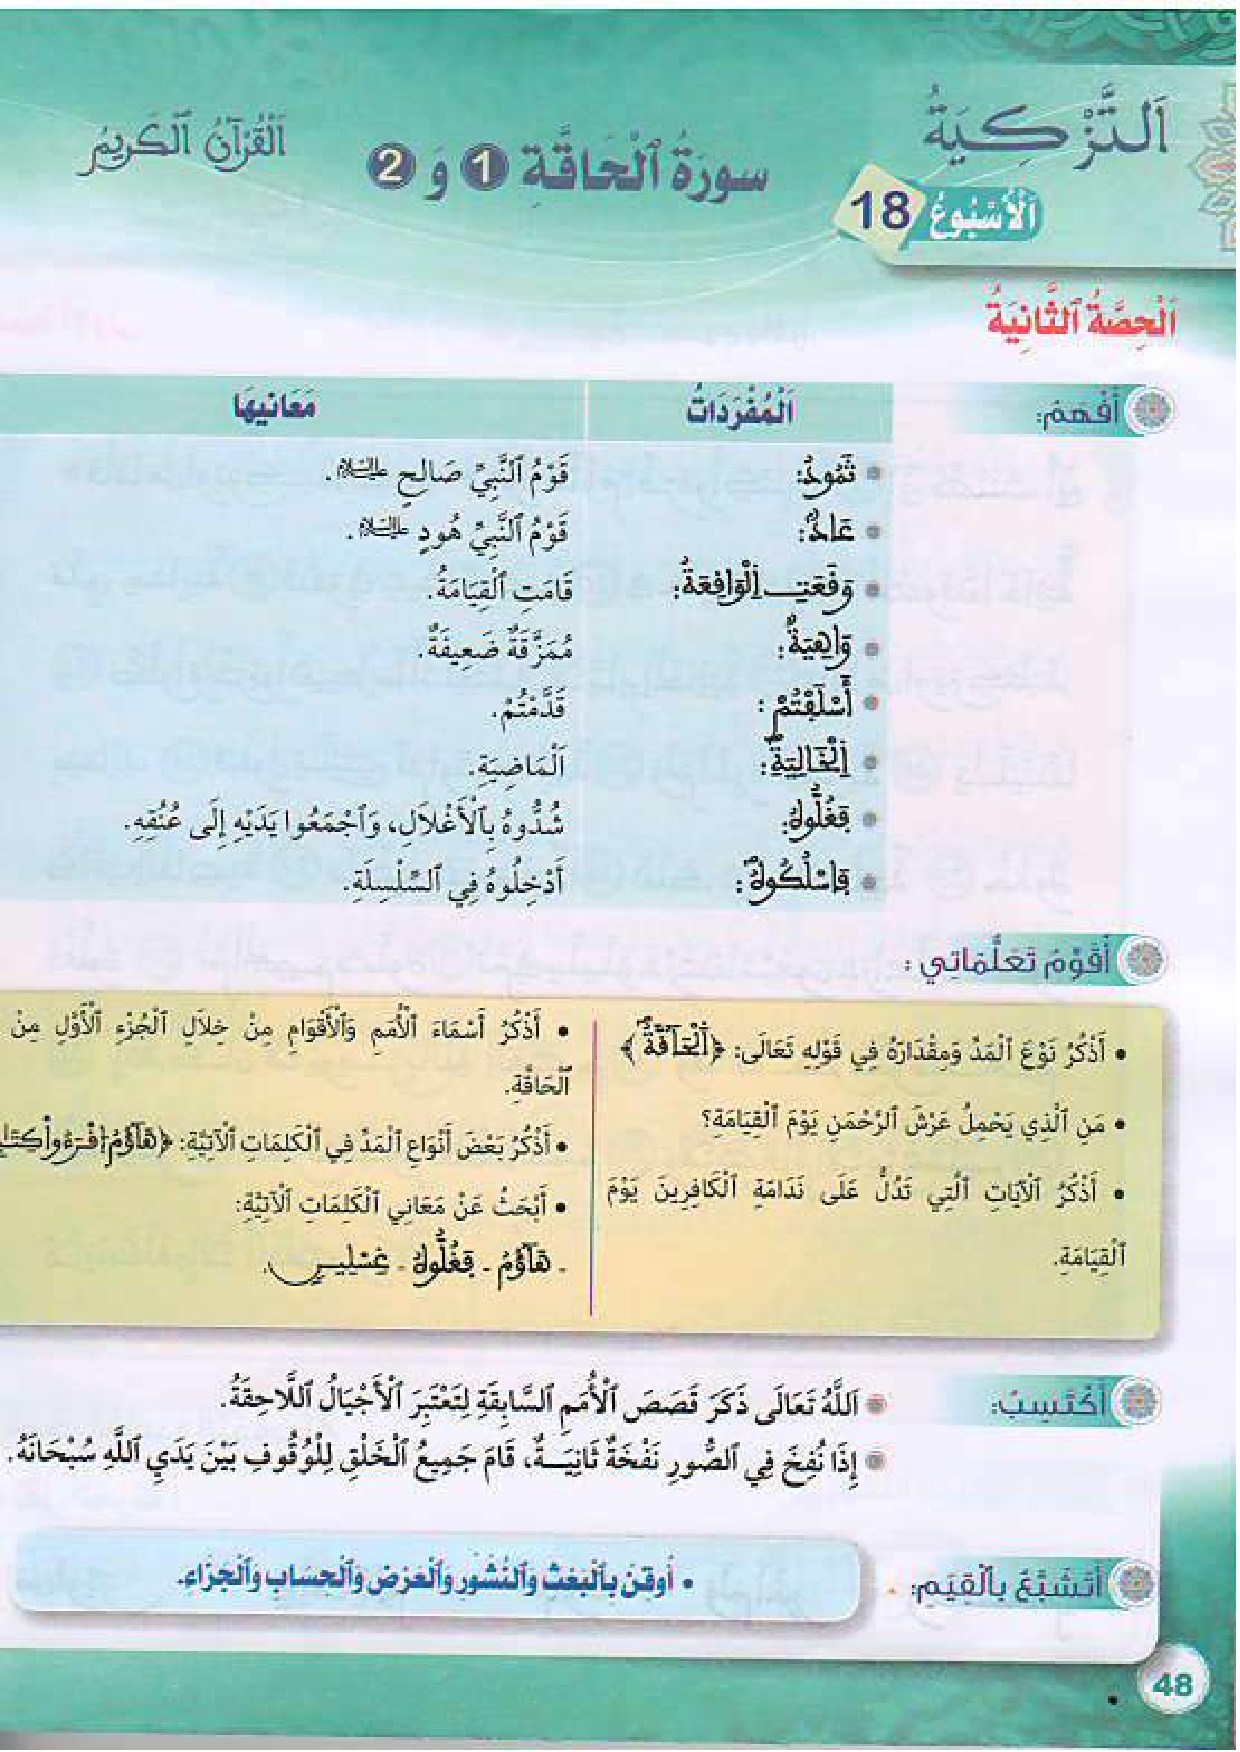 اَلتَّزْكِيَةُ
اَلْقُرْآنُ ٱلْكَرِيمُ
سورَةُ ٱلْحَاقَّةِ 1 وَ 2
اَلْأُسْبُوعُ 18
اَلْحِصَّةُ ٱلثَّانِيَةُ
أَفْهَمُ:
اَلْمُفْرَدَاتُ مَعَانِيهَا
ثَمُودُ: قَوْمُ ٱلنَّبِيِّ صَالِحٍ عليه السلام.
عَادٌ: قَوْمُ ٱلنَّبِيِّ هُودٍ عليه السلام.
وَقَعَتِ اِلْوَاقِعَةُ: قَامَتِ ٱلْقِيَامَةُ.
وَاهِيَةٌ: مُمَزَّقَةٌ ضَعِيفَةٌ.
أَسْلَفْتُمْ: قَدَّمْتُمْ.
اِلْخَالِيَةِ: اَلْمَاضِيَةِ.
فَغُلُّوهُ: شُدُّوهُ بِٱلْأَغْلَالِ، وَٱجْمَعُوا يَدَيْهِ إِلَى عُنُقِهِ.
فَاسْلُكُوهُ: أَدْخِلُوهُ فِي ٱلسِّلْسِلَةِ.
أُقَوِّمُ تَعَلُّمَاتِي:
• أَذْكُرُ نَوْعَ ٱلْمَدِّ وَمِقْدَارَهُ فِي قَوْلِهِ تَعَالَى: ﴿اِلْحَآقَّةُ﴾
• مَنِ ٱلَّذِي يَحْمِلُ عَرْشَ ٱلرَّحْمَنِ يَوْمَ ٱلْقِيَامَةِ؟
• أَذْكُرُ ٱلْآيَاتِ ٱلَّتِي تَدُلُّ عَلَى نَدَامَةِ ٱلْكَافِرِينَ يَوْمَ
ٱلْقِيَامَةِ.
• أَذْكُرُ أَسْمَاءَ ٱلْأُمَمِ وَٱلْأَقْوَامِ مِنْ خِلَالِ ٱلْجُزْءِ ٱلْأَوَّلِ مِنْ
ٱلْحَاقَّةِ.
• أَذْكُرُ بَعْضَ أَنْوَاعِ ٱلْمَدِّ فِي ٱلْكَلِمَاتِ ٱلْآتِيَّةِ: ﴿هَآؤُمُ اُقْرَءُواْ
• أَبْحَثُ عَنْ مَعَانِي ٱلْكَلِمَاتِ ٱلْآتِيَّةِ:
- هَآؤُمُ - فَغُلُّوهُ - غِسْلِينٍ.
أَكْتَسِبُ:
اَللَّهُ تَعَالَى ذَكَرَ قَصَصَ ٱلْأُمَمِ ٱلسَّابِقَةِ لِتَعْتَبِرَ ٱلْأَجْيَالُ ٱللَّاحِقَةُ.
إِذَا نُفِخَ فِي ٱلصُّورِ نَفْخَةٌ ثَانِيَـةٌ، قَامَ جَمِيعُ ٱلْخَلْقِ لِلْوُقُوفِ بَيْنَ يَدَيِ ٱللَّهِ سُبْحَانَهُ.
أَتَشَبَّعُ بِٱلْقِيَمِ:
• أُوقِنُ بِٱلْبَعْثِ وَٱلنُّشُورِ وَٱلْعَرْضِ وَٱلْحِسَابِ وَٱلْجَزَاءِ.
48